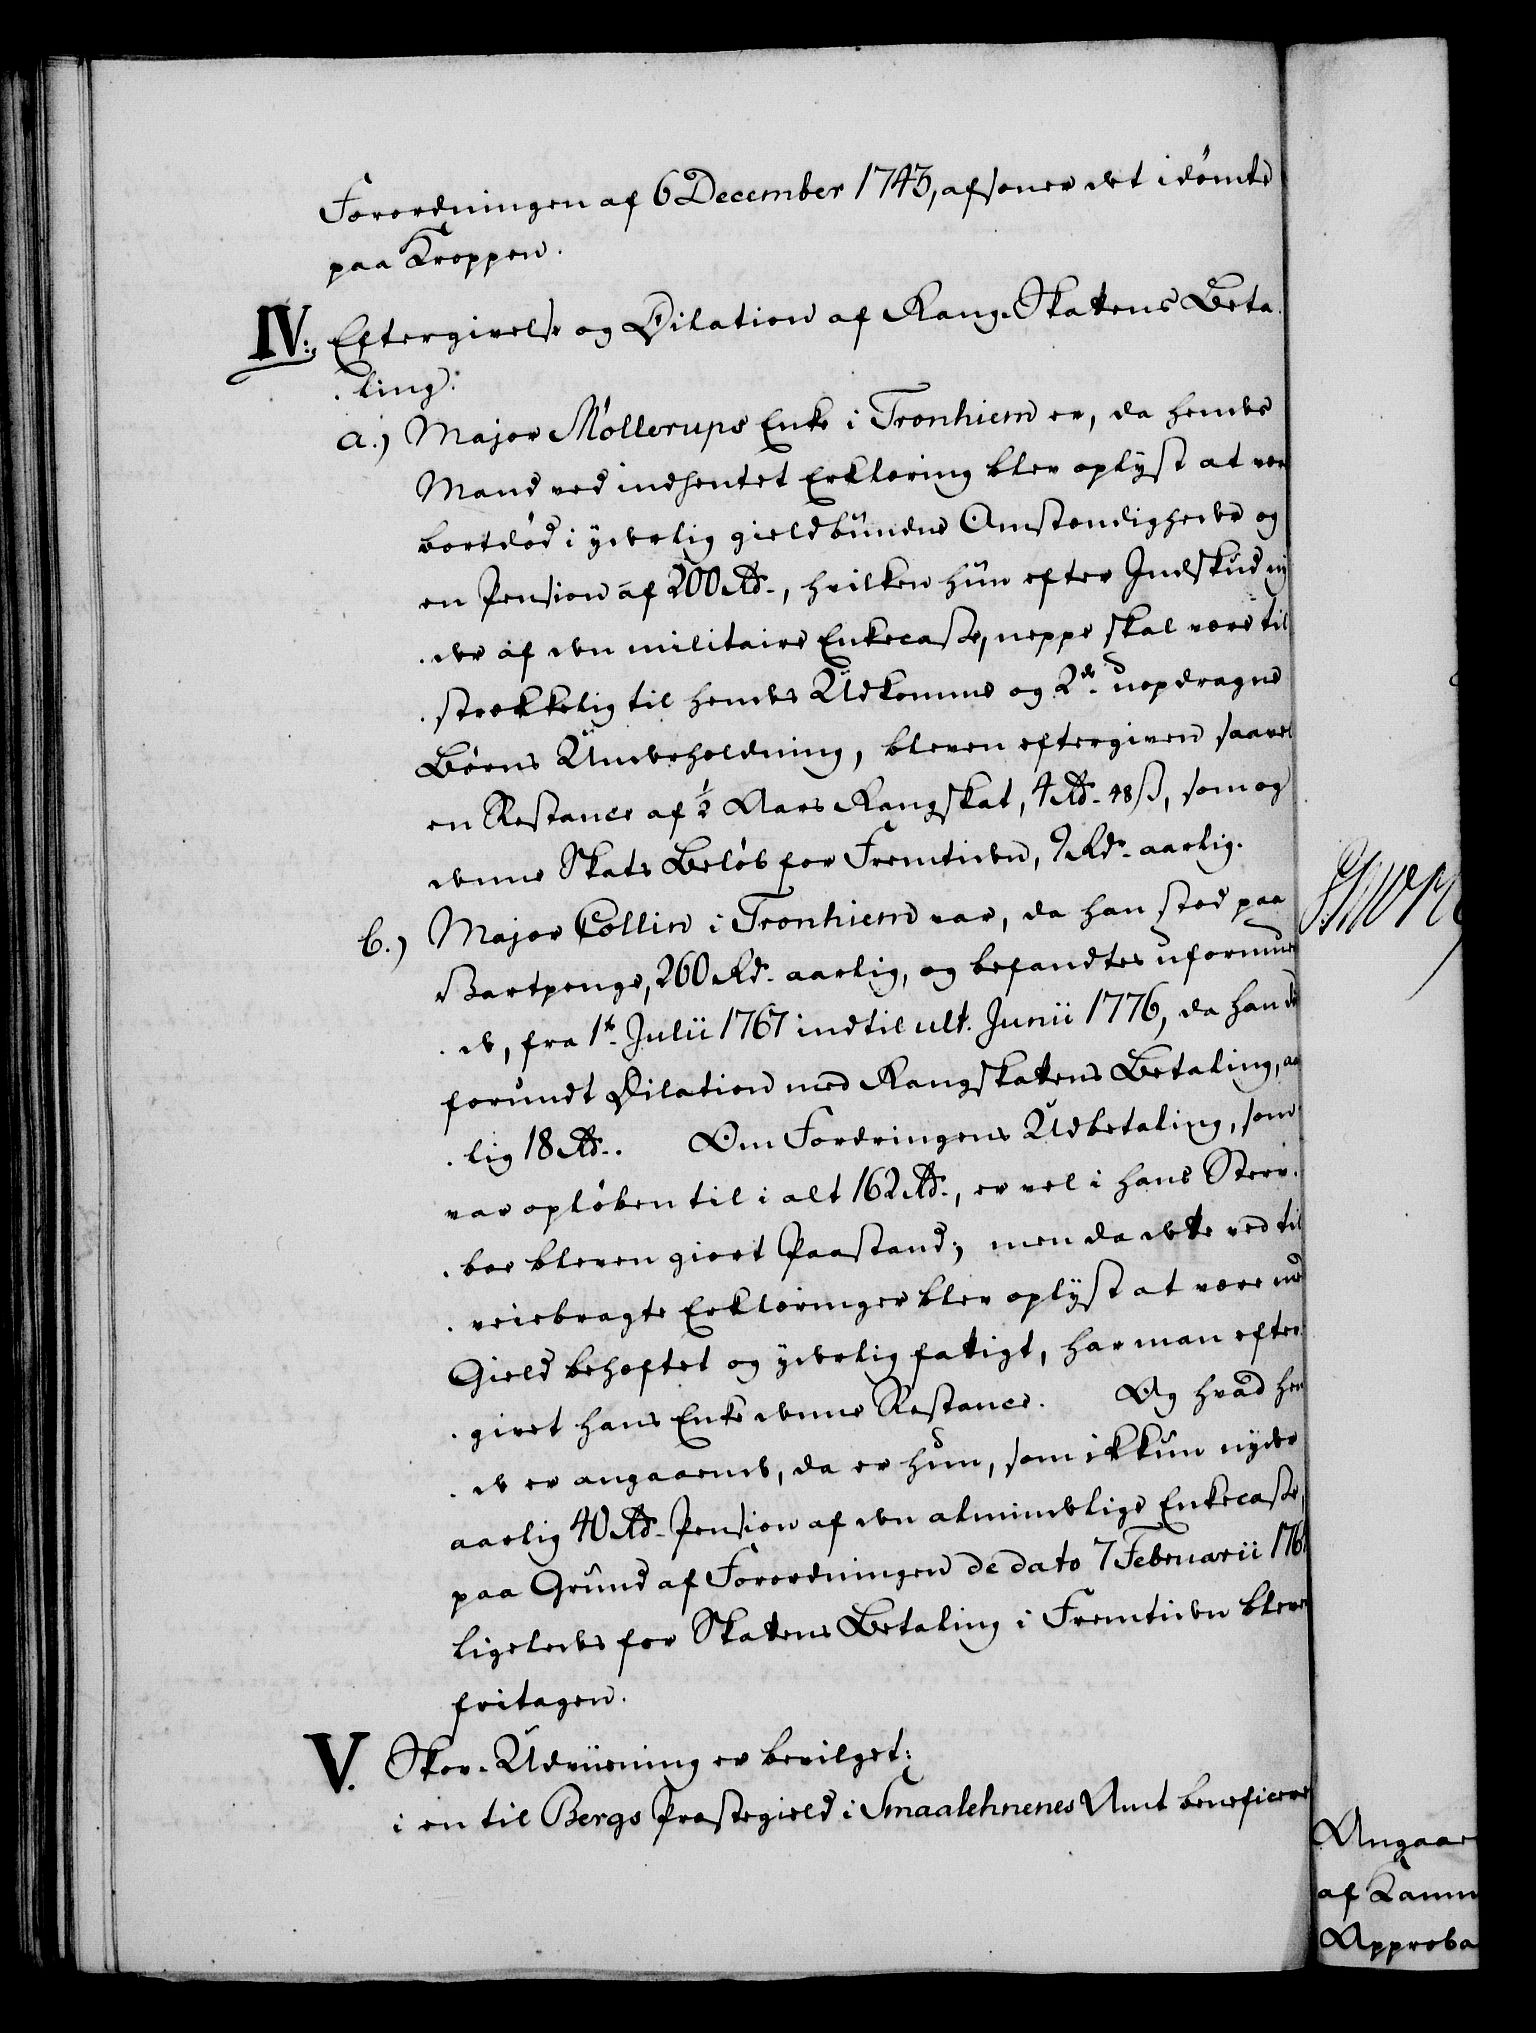 Forordningen af 6 December 1743, afsoner det idømte
paa Kroppen.
IV: Eftergivelse og Dilation af Rang-Skattens Beta-
-ling:
a.) Major Møllerups Enke i Tronhiem er, da hendes
Mand ved indhentet Erklæring blev oplyst at være
bortdød i yderlig gieldbundne Omstændigheder og
en Pension af 200 Rd., hvilken hun efter Indskud ny-
-der af den militaire Enkecasse, neppe skal være til-
-strækkelig til hendes Udkomme og 2de uopdragne
Børns Underholdning, bleven eftergiven saavel
en Restance af ½ Aars Rangskat, 4 Rd. 48 ß, som og
denne Skats Beløb for Fremtiden, 9 Rd. aarlig.
b.) Major Collin i Tronhiem var, da han stod paa
Vartpenge, 260 Rd. aarlig, og befandtes uformuen-
-de, fra 1te Julii 1767 indtil ult. Junii 1776, da han
forundt Dilation med Rangskattens Betaling, aar-
-lig 18 Rd.. Om Fordringens Udbetaling, som
var opløben til i alt 162 Rd., er vel i hans Sterv-
-boe bleven giort Paastand; men da dette ved til-
-veiebragte Erklæringer blev oplyst at være med
Gield beheftet og yderlig fattigt, har man efter-
-givet hans Enke denne Restance. Og hvad hen-
-de er angaaende, da er hun, som ikkun nyder
aarlig 40 Rd. Pension af den almindelige Enkecasse,
paa Grund af Forordningen de dato 7 Februarii 176
ligeledes for Skattens Betaling i Fremtiden bleven
fritagen.
V. Skov-Udviisning er bevilget:
i en til Bergs Præstegield i Smaalehnenes Amt beneficeret
Angaae
af Kamm
Approba